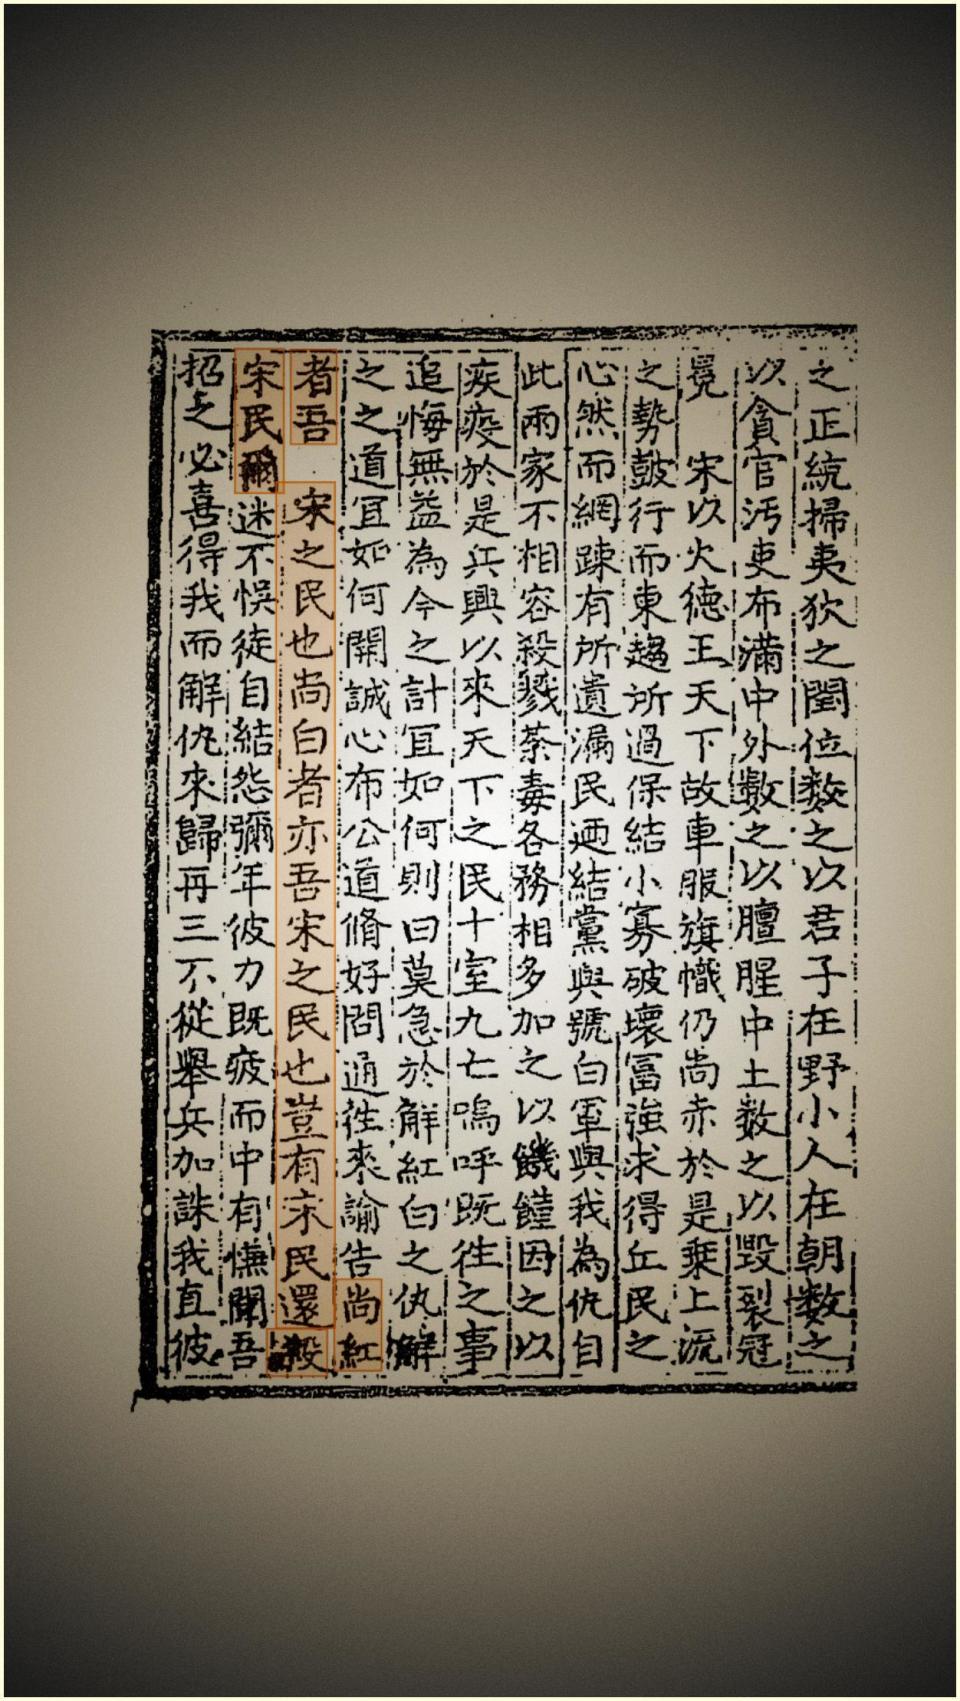 之正統掃夷狄之閏位数之以君子在野小人在朝数之
以貪官汚吏布滿中外數之以膻腥中土数之以毀裂冠
冕　宋以火德王天下故車服旗幟仍尚赤於是乗上流
之勢鼓行而東趨所過保結小寡破壞冨強求得丘民之
心然而網踈有所遺漏民廼結黨與號白軍與我為仇自
此兩家不相容殺戮荼毒各務相多加之以饑饉因之以
疾疫於是兵興以來天下之民十室九亡嗚呼既徃之事
追悔無益為今之計冝如何則曰莫急於解紅白之仇解
之之道冝如何開誠心布公道脩好問通徃來諭告尚紅
者吾　宋之民也尚白者亦吾宋之民也豈有宋民還殺
宋民爾迷不悮徒自結怨彌年彼力既疲而中有憮聞吾
招之必喜得我而解仇來歸再三不從舉兵加誅我直彼